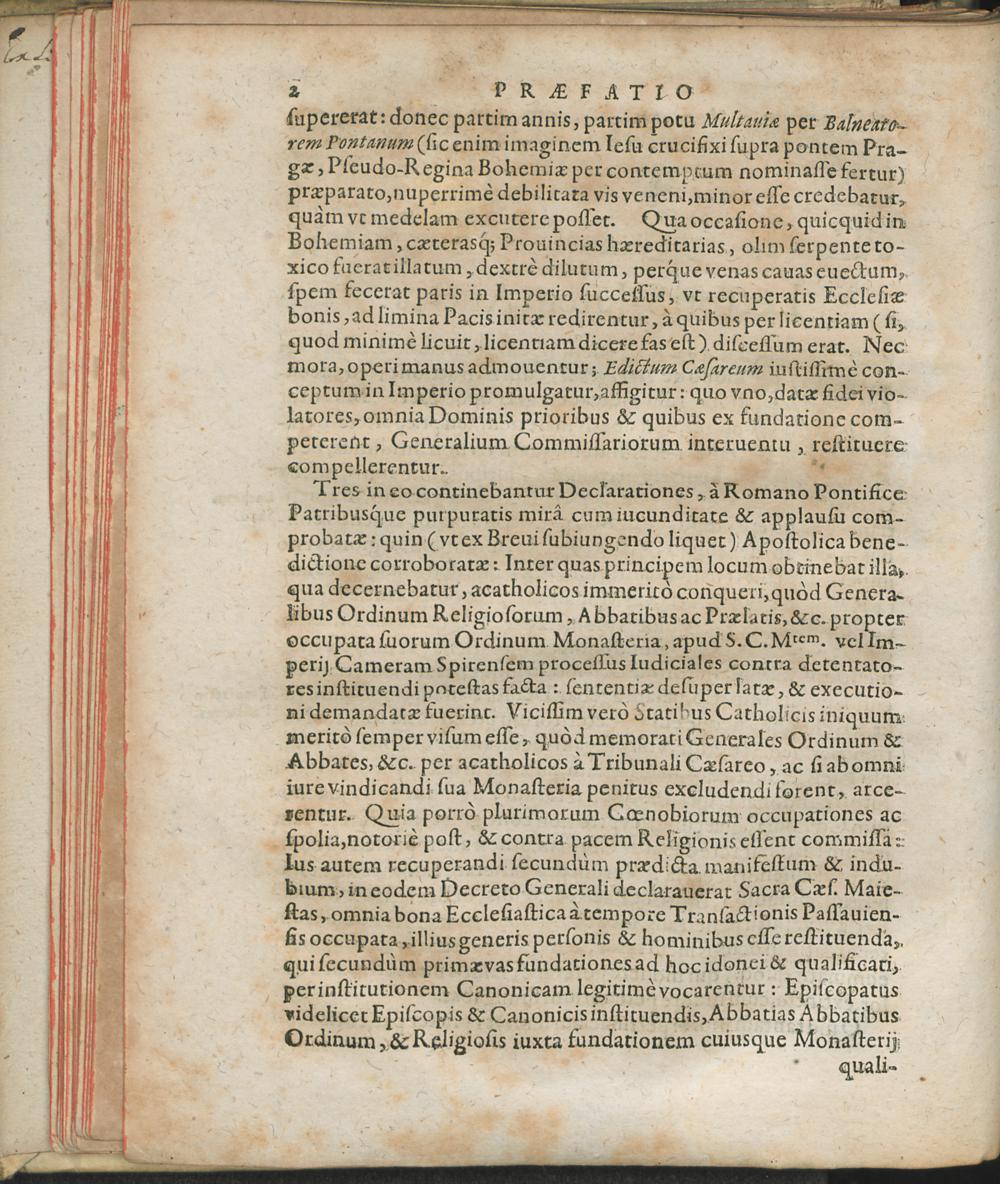 2 PRÆFATIO
ſupererat: donec partim annis, partim potu Multauiæ per Balneato-
rem Pontanum (ſic enim imaginem Ieſu crucifixi ſupra pontem Pra-
gæ, Pſeudo-Regina Bohemiæ per contemptum nominaſſe fertur)
præparato, nuperrimè debilitata vis veneni, minor eſſe credebatur,
quàm vt medelam excutere poſſet. Qua occaſione, quicquid in
Bohemiam, cæterasq́; Prouincias hæreditarias, olim ſerpente to-
xico fuerat illatum, dextrè dilutum, perq́ue venas cauas euectum,
ſpem fecerat paris in Imperio ſucceſſus, vt recuperatis Eccleſiæ
bonis, ad limina Pacis initæ redirentur, à quibus per licentiam (ſi,
quod minimè licuit, licentiam dicere fas eſt) diſceſſum erat. Nec
mora, operi manus admouentur; Edictum Cæſareum iuſtiſſimè con-
ceptum in Imperio promulgatur, affigitur: quo vno, datæ fidei vio-
latores, omnia Dominis prioribus & quibus ex fundatione com-
peterent, Generalium Commiſſariorum interuentu, reſtituere
compellerentur.
Tres in eo continebantur Declarationes, à Romano Pontifice
Patribusq́ue purpuratis mirâ cum iucunditate & applauſu com-
probatæ: quin (vt ex Breui ſubiungendo liquet) Apoſtolica bene-
dictione corroboratæ: Inter quas principem locum obtinebat illa,
qua decernebatur, acatholicos immeritò conqueri, quòd Genera-
libus Ordinum Religioſorum, Abbatibus ac Prælatis, &c. propter
occupata ſuorum Ordinum Monaſteria, apud S. C. Mᵗᵉᵐ. vel Im-
perij Cameram Spirenſem proceſſus Iudiciales contra detentato-
res inſtituendi poteſtas facta: ſententiæ deſuper latæ, & executio-
ni demandatæ fuerint. Viciſſim verò Statibus Catholicis iniquum
meritò ſemper viſum eſſe, quòd memorati Generales Ordinum &
Abbates, &c. per acatholicos à Tribunali Cæſareo, ac ſi ab omni
iure vindicandi ſua Monaſteria penitus excludendi forent, arce-
rentur. Quia porrò plurimorum Cœnobiorum occupationes ac
ſpolia, notoriè poſt, & contra pacem Religionis eſſent commiſſa:
Ius autem recuperandi ſecundùm prædicta manifeſtum & indu-
bium, in eodem Decreto Generali declarauerat Sacra Cæſ. Maie-
ſtas, omnia bona Eccleſiaſtica à tempore Tranſactionis Paſſauien-
ſis occupata, illius generis perſonis & hominibus eſſe reſtituenda,
qui ſecundùm primævas fundationes ad hoc idonei & qualificati,
per inſtitutionem Canonicam legitimè vocarentur: Epiſcopatus
videlicet Epiſcopis & Canonicis inſtituendis, Abbatias Abbatibus
Ordinum, & Religioſis iuxta fundationem cuiusque Monaſterij
quali-